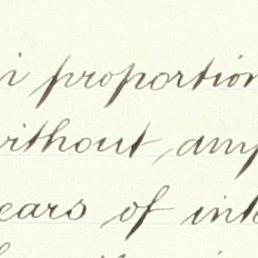 proportion
without amp
ears of int